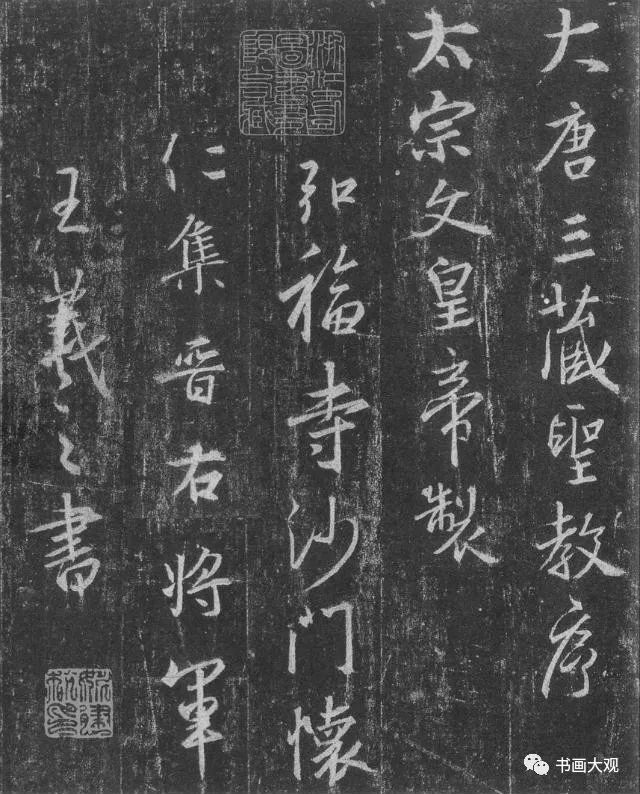 大唐三藏聖教序
太宗文皇帝製
弘福寺沙門懷
仁集晉右將軍
王羲之書
书画大观